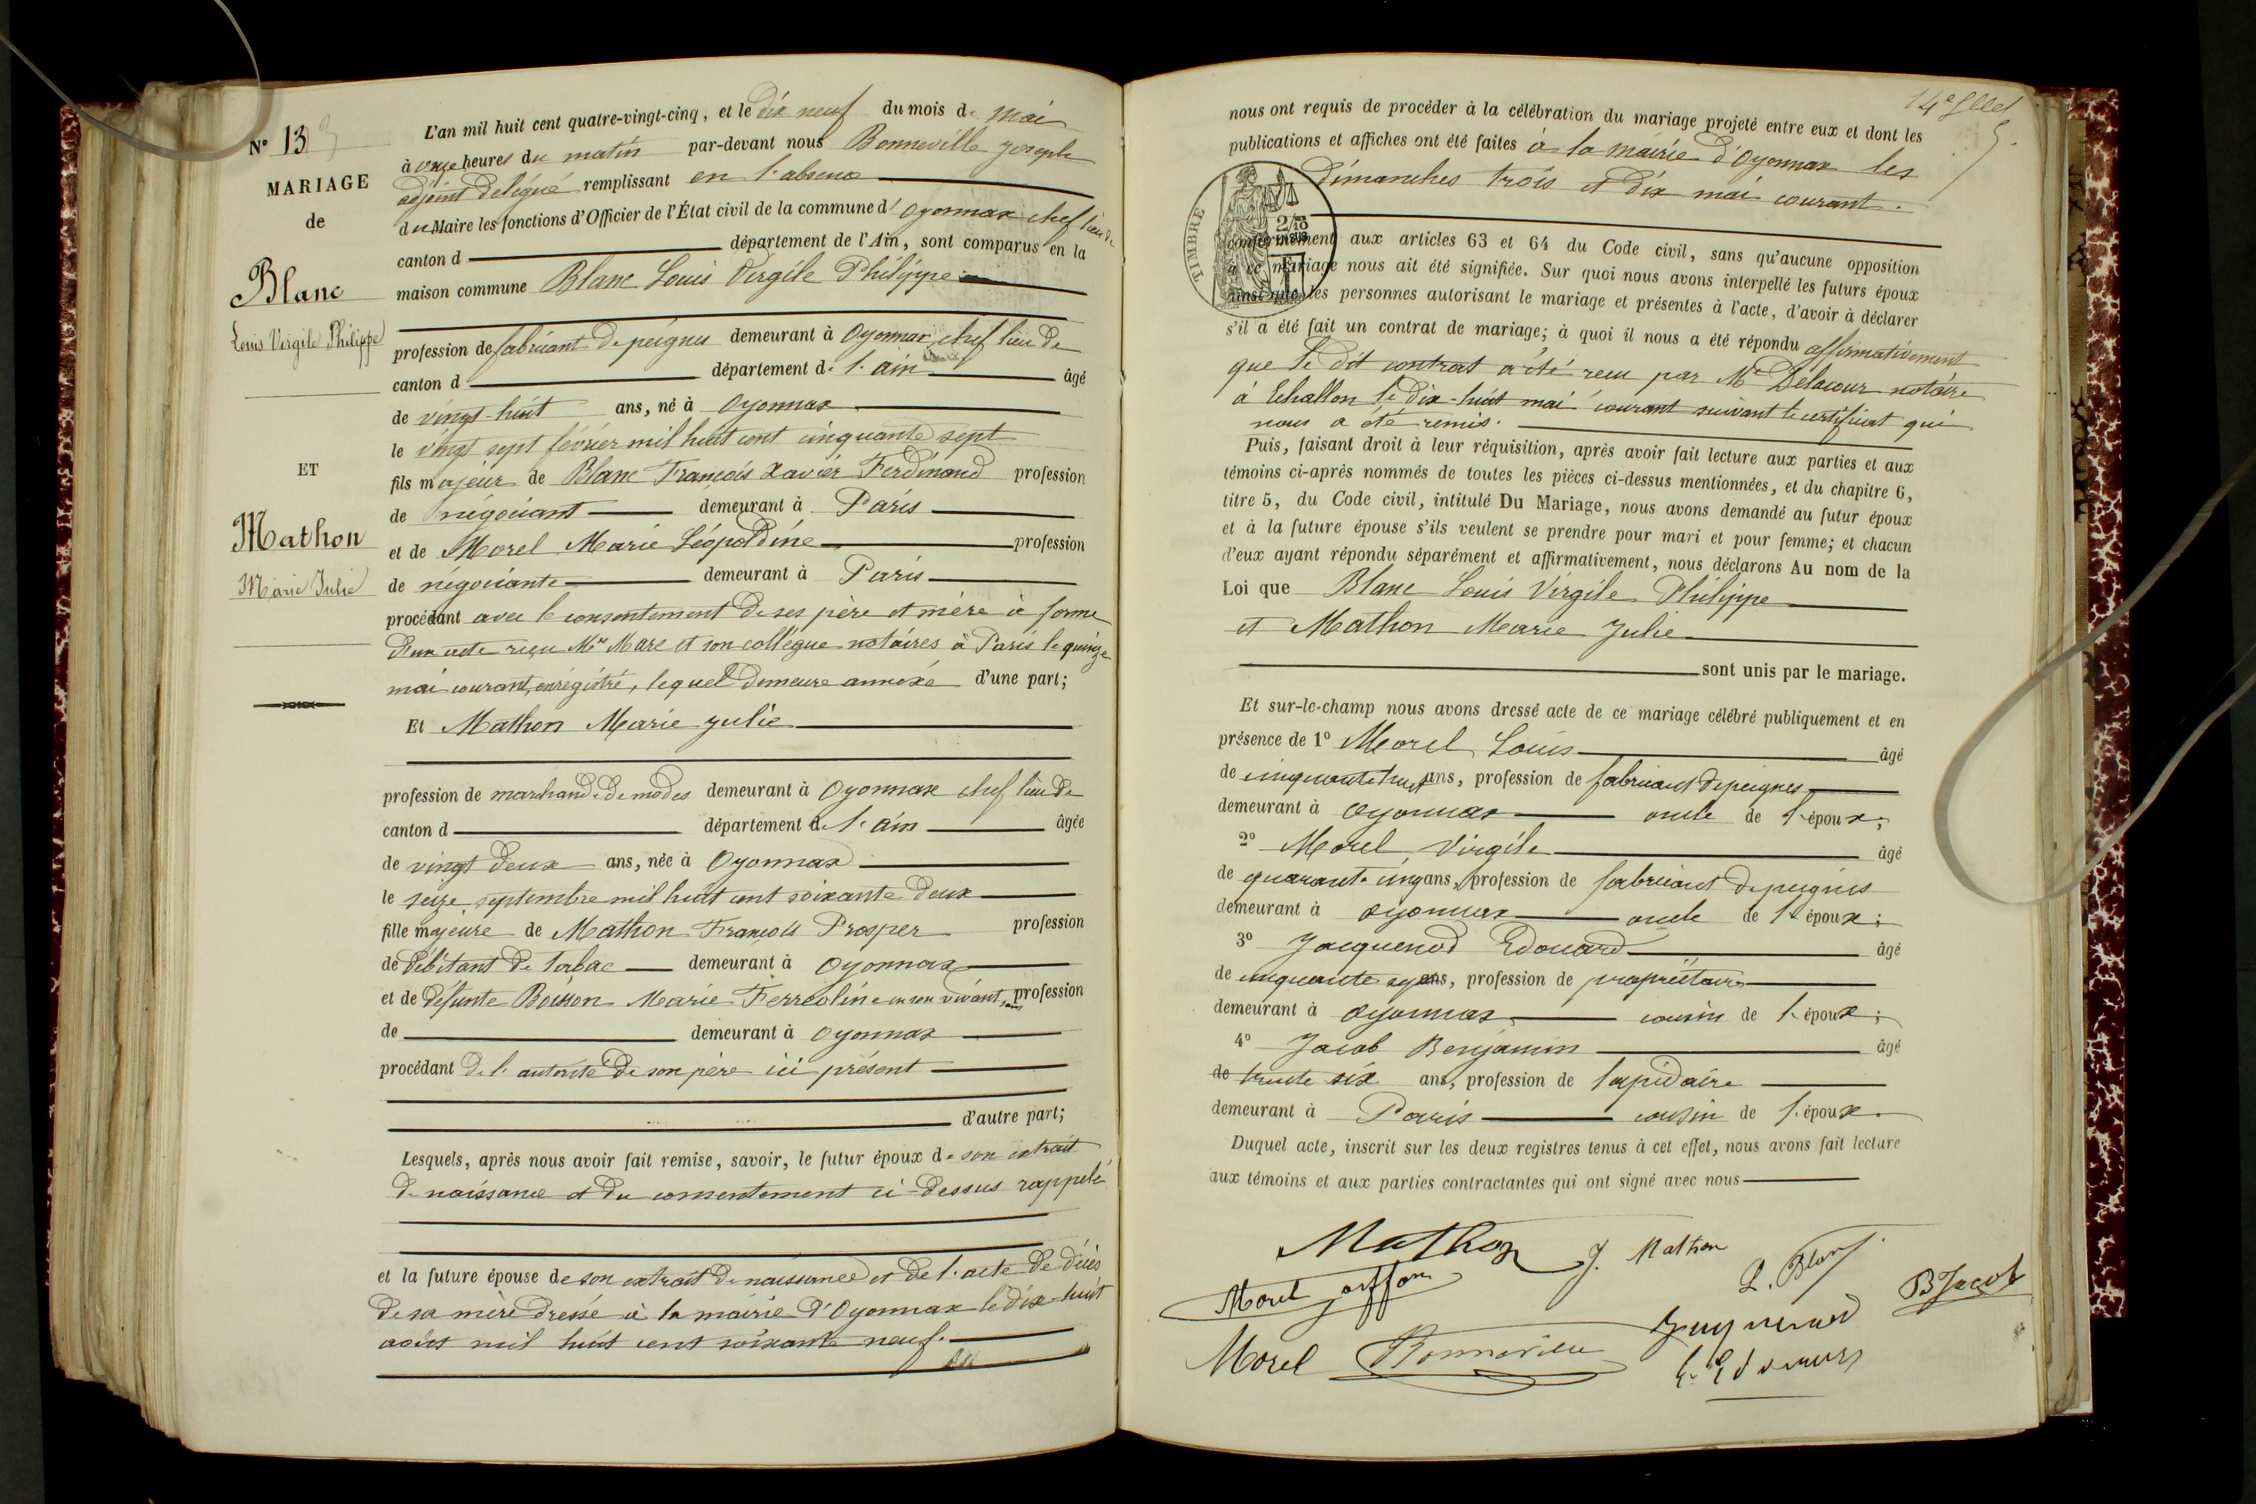 N° 13
MARIAGE
de
Blanc
Louis Virgile Philippe
ET
Mathon
Marie Julie
L'an mil huit cent quatre-vingt-cinq, et le dix neuf du mois de mai
à onze heures du matin par-devant nous Bonneville Joseph
adjoint délégué remplissant en l'absence
du Maire les fonctions d'Officier de l'État civil de la commune d' Oyonnax chef lieu de
canton d département de l'Ain, sont comparus en la
maison commune Blanc Louis Virgile Philippe
profession de fabricant de peignes demeurant à Oyonnax, chef lieu de
canton d département de l'ain âgé
de vingt-huit ans, né à Oyonnax
le vingt sept février mil huit cent cinquante sept
fils majeur de Blanc François Xavier Ferdinand profession
de négociant demeurant à Paris
et de Morel Marie Léopoldine profession
de négociante demeurant à Paris
procédant avec le consentement de ses père et mère à forme
d'un acte reçu Me Marc et son collègue notaires à Paris le quinze
mai courant, enrégistré, lequel demeure annexé d'une part;
Et Mathon Marie Julie
profession de marchande de modes demeurant à Oyonnax chef lieu de
canton d département de l'ain âgée
de vingt deux ans, née à Oyonnax
le seize septembre mil huit cent soixante deux
fille majeure de Mathon François Prosper profession
de débitant de tabac demeurant à Oyonnax
et de défunte Boisson Marie Ferréoline en son vivant, sans profession
de demeurant à Oyonnax
procédant de l'autorité de son père ici présent
d'autre part;
Lesquels, après nous avoir fait remise, savoir, le futur époux de son extrait
de naissance et du consentement ci-dessus rappelé
et la future épouse de son extrait de naissance et de l'acte de décès
de sa mère dressé à la mairie d'Oyonnax le dix-huit
août mil huit cent soixante neuf.
14e fllet
nous ont requis de procéder à la célébration du mariage projeté entre eux et dont les
publications et affiches ont été faites à la mairie d'Oyonnax les
dimanches trois et dix mai courant.
TIMBRE
conformément aux articles 63 et 64 du Code civil, sans qu'aucune opposition
à ce mariage nous ait été signifiée. Sur quoi nous avons interpellé les futurs époux
ainsi que les personnes autorisant le mariage et présentes à l'acte, d'avoir à déclarer
s'il a été fait un contrat de mariage; à quoi il nous a été répondu affirmativement
que le dit contrat a été reçu par Me Delacour notaire
à Echallon le dix-huit mai courant suivant le certificat qui
nous a été remis.
Puis, faisant droit à leur réquisition, après avoir fait lecture aux parties et aux
témoins ci-après nommés de toutes les pièces ci-dessus mentionnées, et du chapitre 6,
titre 5, du Code civil, intitulé Du Mariage, nous avons demandé au futur époux
et à la future épouse s'ils veulent se prendre pour mari et pour femme; et chacun
d'eux ayant répondu séparément et affirmativement, nous déclarons Au nom de la
Loi que Blanc Louis Virgile Philippe
et Mathon Marie Julie
sont unis par le mariage.
Et sur-le-champ nous avons dressé acte de ce mariage célébré publiquement et en
présence de 1° Morel Louis âgé
de cinquante huit ans, profession de fabricant de peignes
demeurant à Oyonnax oncle de l'époux;
2° Morel Virgile âgé
de quarante cinq ans, profession de fabricant de peignes
demeurant à Oyonnax oncle de l'époux;
3° Jacquenod Edouard âgé
de cinquante ans, profession de propriétaire
demeurant à Oyonnax cousin de l'époux;
4° Jacob Benjamin âgé
de trente six ans, profession de lapidaire
demeurant à Paris cousin de l'époux.
Duquel acte, inscrit sur les deux registres tenus à cet effet, nous avons fait lecture
aux témoins et aux parties contractantes qui ont signé avec nous
Mathon J. Mathon L. Blanc
Morel B Jacob
Morel Bonneville